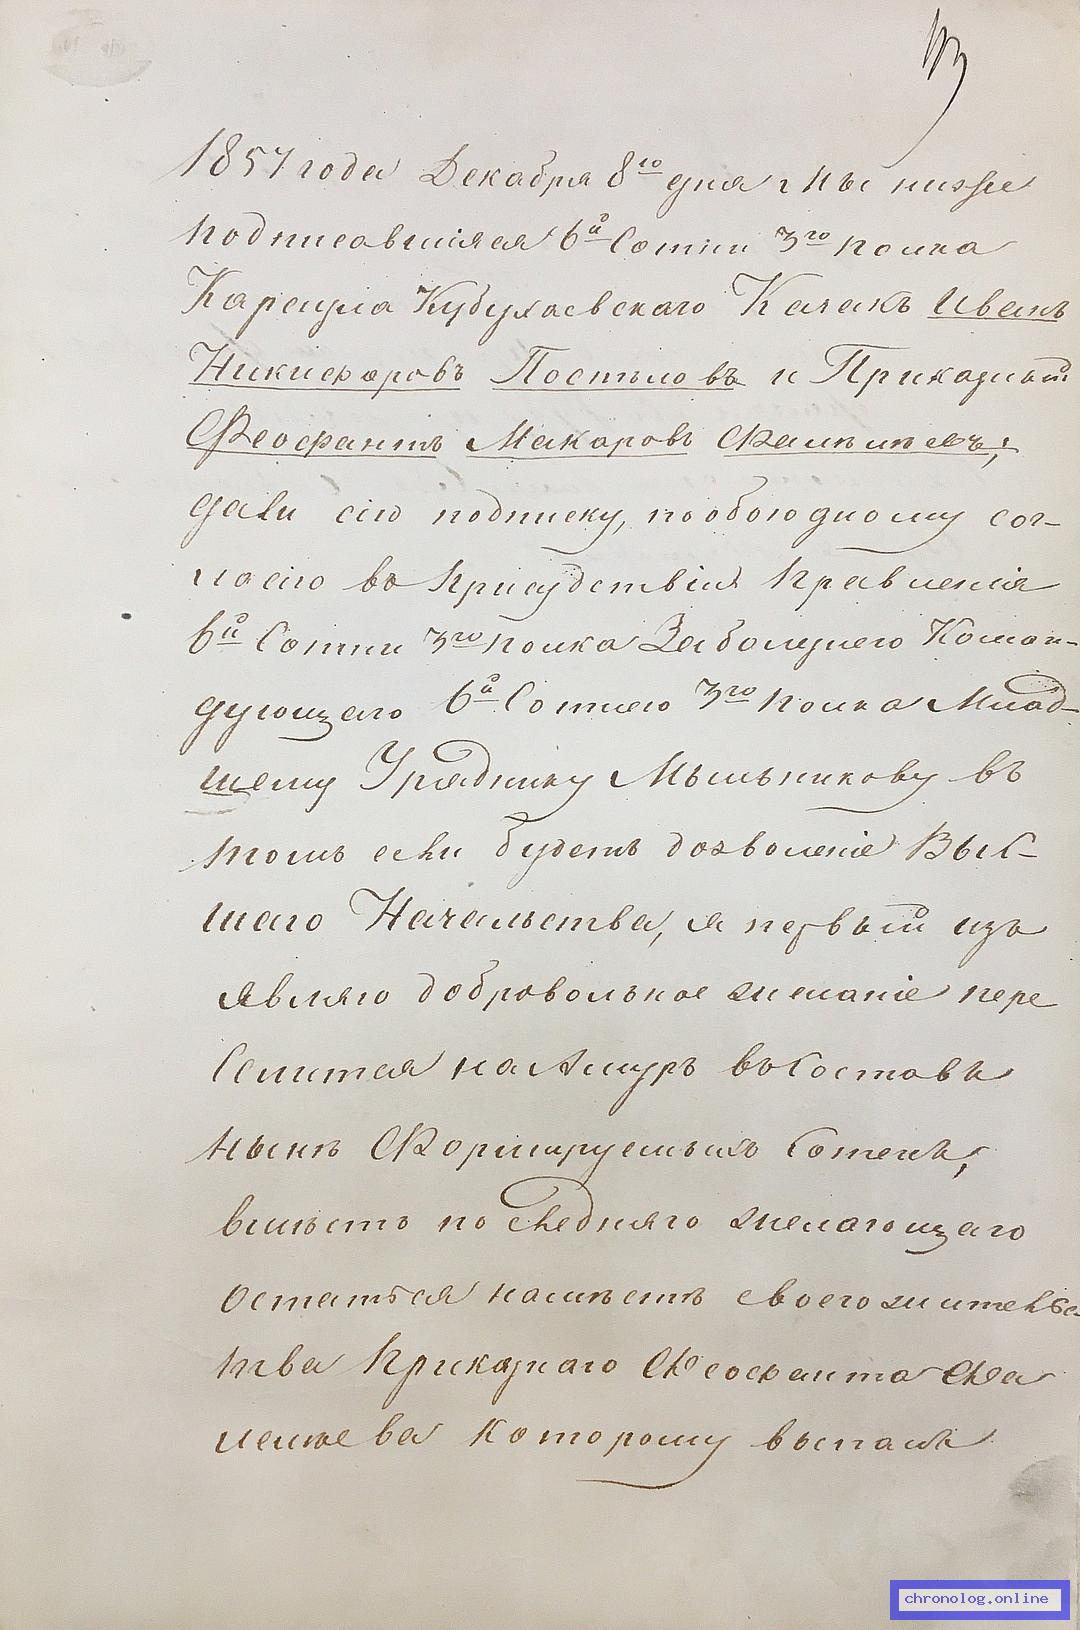 1857 года Декабря 8го дня, Мы ниже
подписавшіяся 6й Сотни 3го полка
Караула Кубухаевскаго Казакъ Иванъ
Никифоровъ Постыловъ и Приказный
Феофантъ Макаровъ
дали сію подписку, по обоюдному сог-
ласію въ присудствіи Правленія
6й Сотни 3го полка За болѣзнею Коман-
дующаго 6й Сотнею 3го полка Млад-
шему Уряднику Мыльникову въ
томъ если будетъ дозволеніе Выс-
шаго Начальства, я первый изъ
являю добровольное желаніе пере
селится на Амуръ въ Составъ
нынѣ Формируемыхъ Сотенъ,
вмѣсто последняго желающаго
остаться на мѣстѣ своего жительс
тва Приказнаго Феофанта
которому выпалъ
chronolog.online